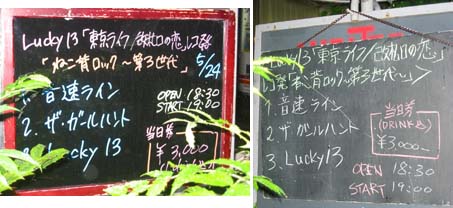 Lucky13「東京ライフ/改札口の恋」レコ発
「ねこ背ロック〜第3世代〜」
5/24
1. 音速ライン
2. ザ・ガールハント
3. Lucky 13
OPEN 18:30
START 19:00
当日券
¥3,000
Lucky13「東京ライフ/改札口の恋」
レコ発「ねこ背ロック〜第3世代〜」
1. 音速ライン
2. ザ ガールハント
3. Lucky13
当日券
(DRINK込)
¥3,000
OPEN 18:30
START 19:00